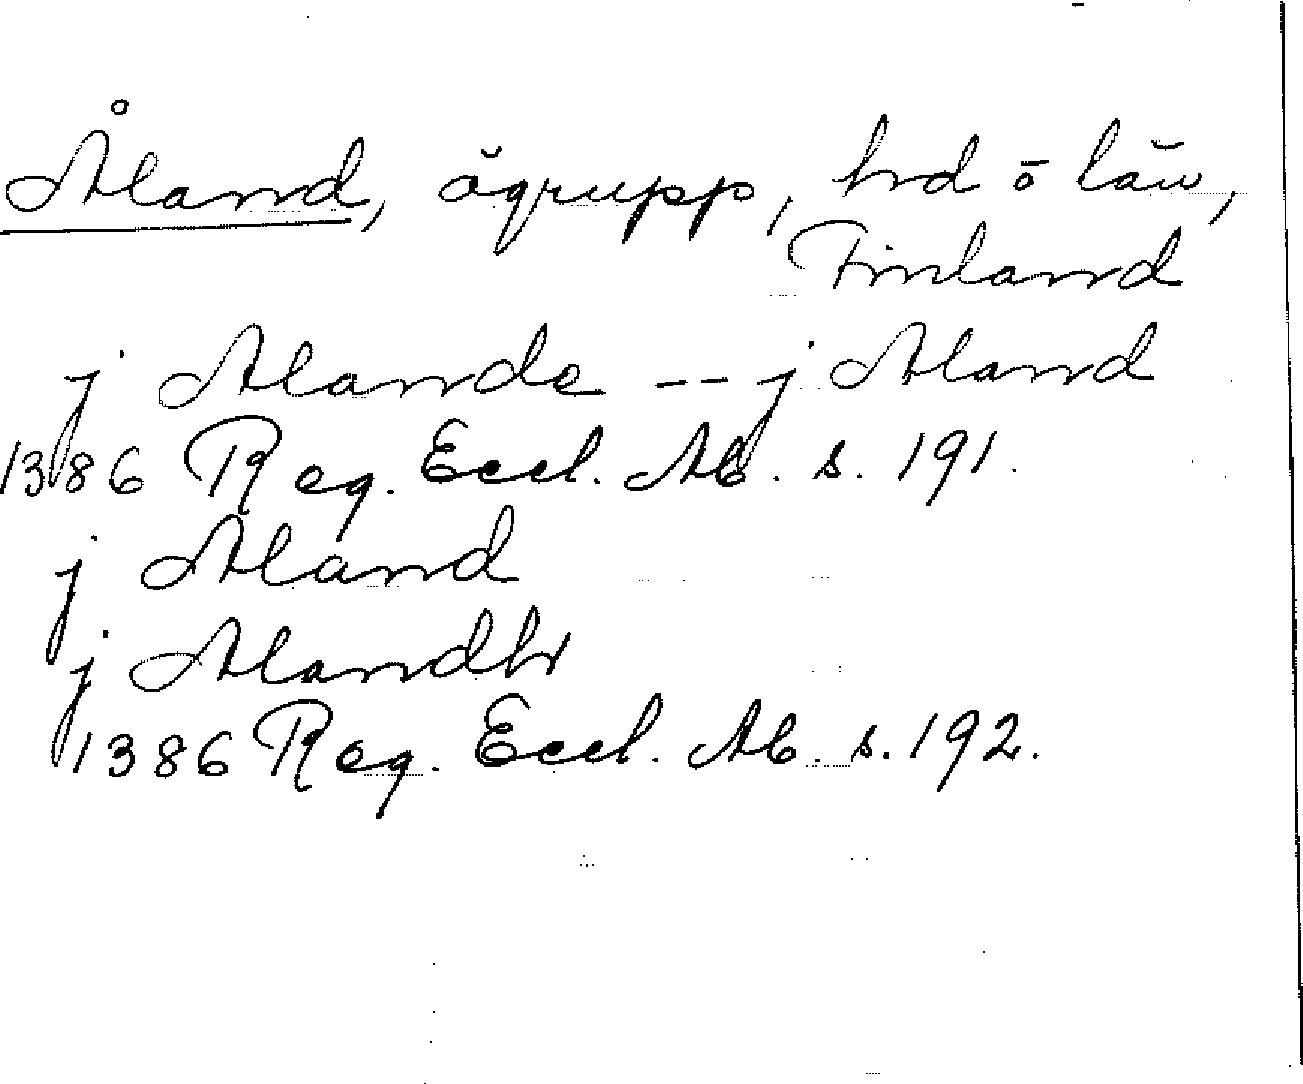 Åland, ögrupp, hd o län,
Finland
j Alande -- j Aland
1386 Reg. Eccl. Ab. s. 191.
j Aland
j Alandh
1386 Reg. Eccl. Ab. s. 192.